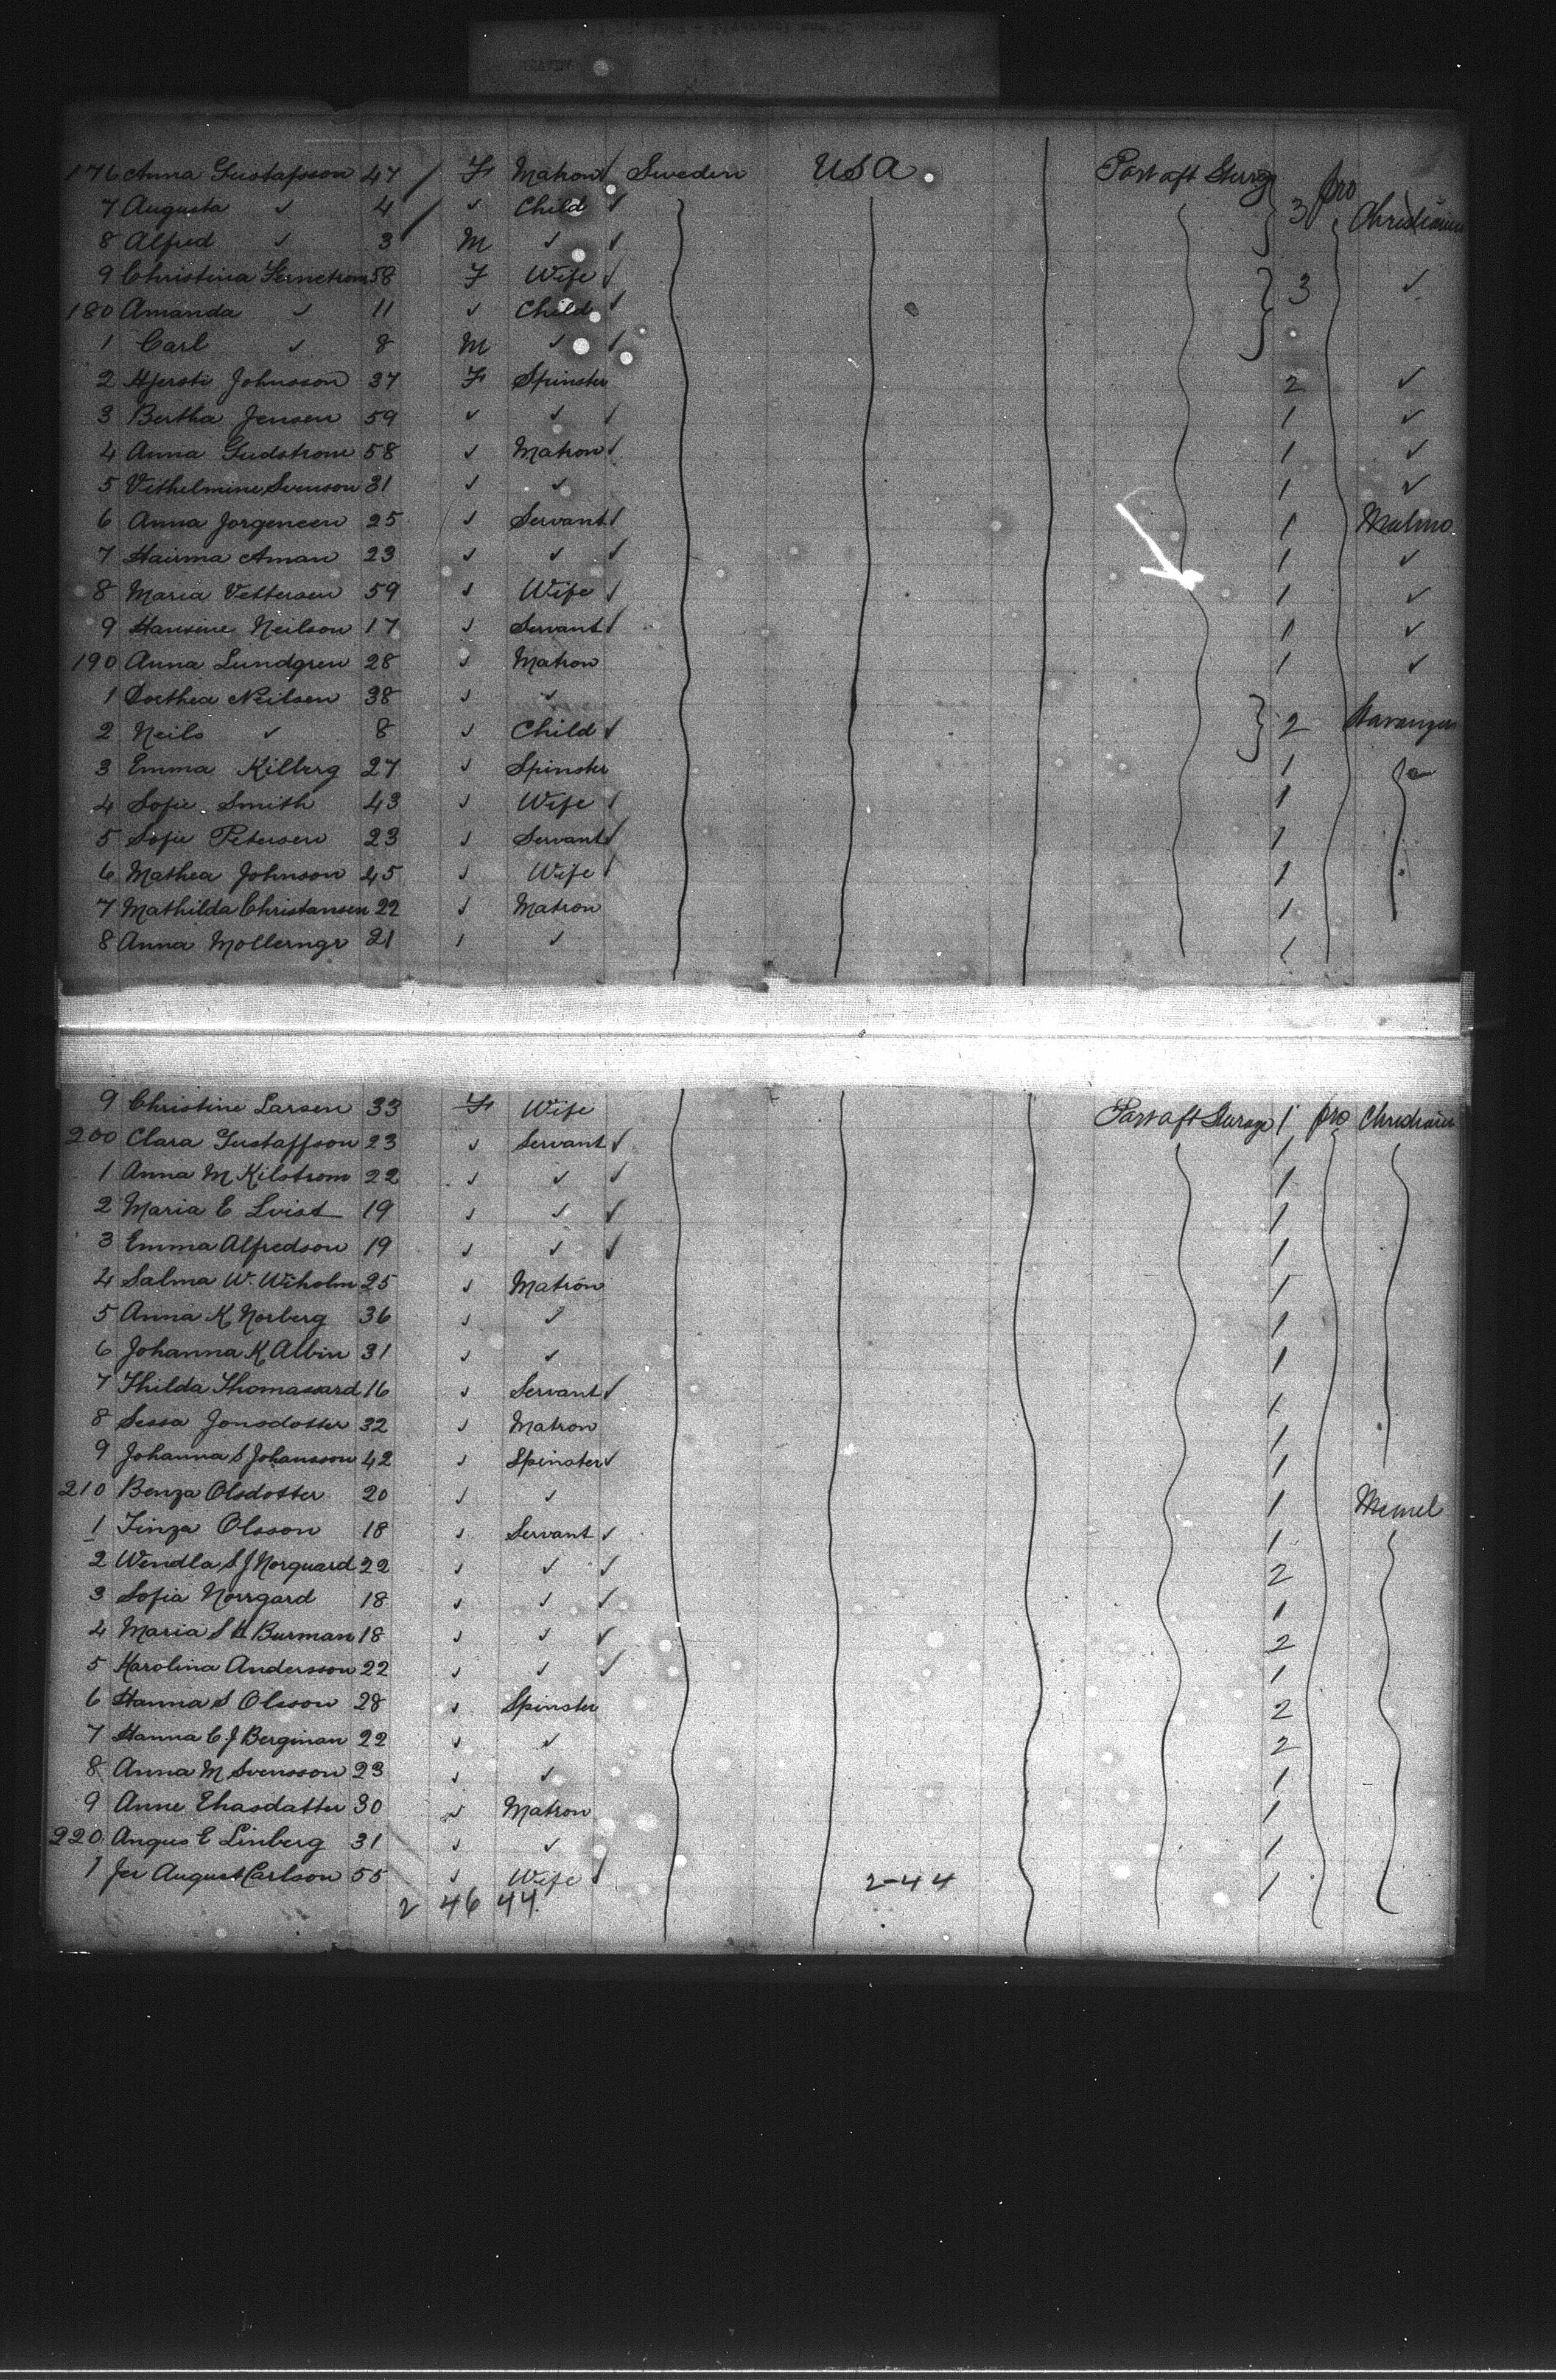 176 Anna Gustafsson 47 / F Matron ✓ Sweden USA. Port aft Sterrag 3 pro
7 Augusta ✓ 4 / ✓ Child ✓ Christiania
8 Alfred ✓ 3 M ✓ ✓
9 Christina 58 F Wife ✓ 3 ✓
180 Amanda ✓ 11 ✓ Child ✓
1 Carl ✓ 8 M ✓ ✓
2 Johnsson 37 F Spinster 2 ✓
3 Bertha Jensen 59 ✓ ✓ ✓ 1 ✓
4 Anna Gudstrom 58 ✓ Matron ✓ 1 ✓
5 Vilhelmine Svenson 31 ✓ ✓ 1 ✓
6 Anna Jorgensen 25 ✓ Servant ✓ 1 Malmo
7 Aman 23 ✓ ✓ ✓ 1 ✓
8 Maria Vettersen 59 ✓ Wife ✓ 1 ✓
9 Hansine Neilson 17 ✓ Servant ✓ 1 ✓
190 Anna Lundgren 28 ✓ Matron 1 ✓
1 Dorthea Neilsen 38 ✓ ✓
2 Neils ✓ 8 ✓ Child ✓ 2 Stavanger
3 Emma Kilberg 27 ✓ Spinster 1
4 Sofie Smith 43 ✓ Wife ✓ 1
5 Sofie Petersen 23 ✓ Servant ✓ 1
6 Mathea Johnson 45 ✓ Wife ✓ 1
7 Mathilda Christansen 22 ✓ Matron 1
8 Anna Mollerngr 21 ✓ ✓ 1
9 Christine Larsen 33 F Wife Port aft Sterage 1 pro Christiania
200 Clara Gustaffson 23 ✓ Servant ✓ 1
1 Anna M Kilstrom 22 ✓ ✓ ✓ 1
2 Maria E Lvist 19 ✓ ✓ ✓ 1
3 Emma Alfredson 19 ✓ ✓ ✓ 1
4 Salma W. Wiholm 25 ✓ Matron 1
5 Anna K Norberg 36 ✓ ✓ 1
6 Johanna K Albin 31 ✓ ✓ 1
7 Thilda Thomasard 16 ✓ Servant ✓ 1
8 Sessa Jonsdotter 32 ✓ Matron 1
9 Johanna S Johansson 42 ✓ Spinster ✓ 1
210 Benza Olsdotter 20 ✓ ✓ 1 Memel
1 Tinza Olsson 18 ✓ Servant ✓ 1
2 Wendla S J Norquard 22 ✓ ✓ ✓ 2
3 Sofia Norrgard 18 ✓ ✓ ✓ 1
4 Maria S H Burman 18 ✓ ✓ ✓ 2
5 Karolina Andersson 22 ✓ ✓ ✓ 1
6 Hanna S Olsson 28 ✓ Spinster 2
7 Hanna C. J Bergman 22 ✓ ✓ 2
8 Anna M Svensson 23 ✓ ✓ 1
9 Anne Ehasdatter 30 ✓ Matron 1
220 Angus E Linberg 31 ✓ ✓ 1
1 Jer August Carlson 55 ✓ Wife ✓ 2-44 1
2 46 44